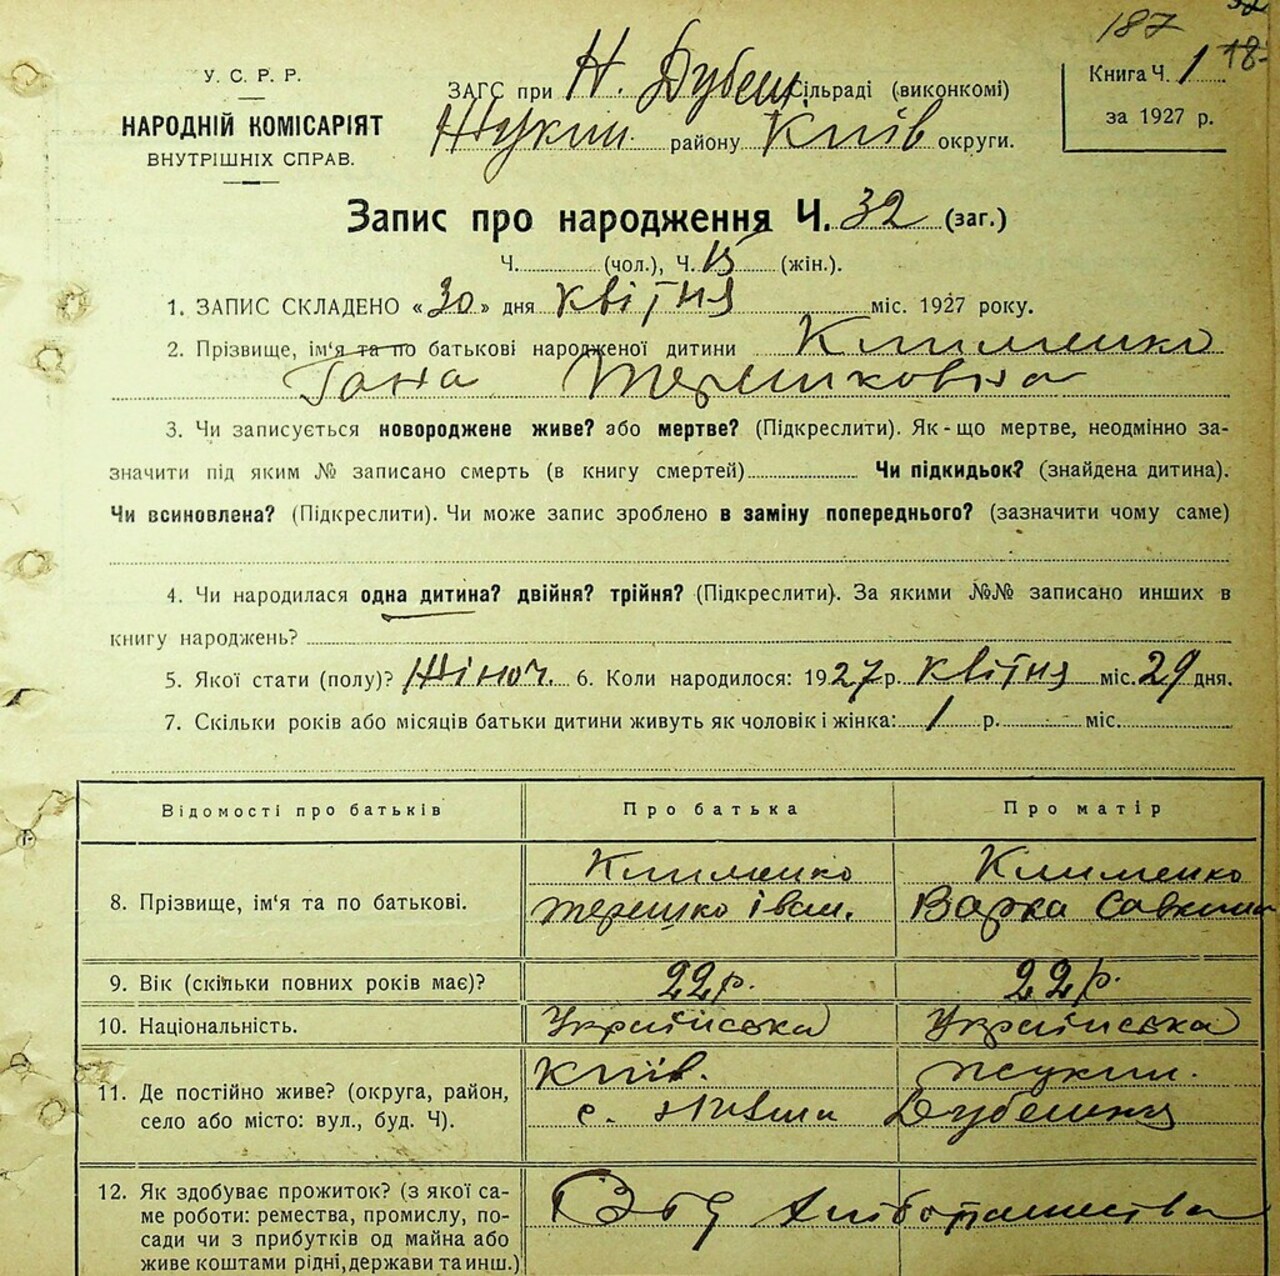 187
18
У. С. Р. Р.
НАРОДНІЙ КОМІСАРІЯТ
ВНУТРІШНІХ СПРАВ.
ЗАГС при Н. Дубеш. Сільраді (виконкомі)
Жукин. району Київ округи.
Книга Ч. 1
за 1927 р.
Запис про народження Ч. 32 (заг.)
Ч. (чол.), Ч. 15 (жін.).
1. ЗАПИС СКЛАДЕНО «30» дня квітня міс. 1927 року.
2. Прізвище, ім'я та по батькові народженої дитини Клименко
Гана Терешковна
3. Чи записується новороджене живе? або мертве? (Підкреслити). Як-що мертве, неодмінно за-
значити під яким № записано смерть (в книгу смертей) Чи підкидьок? (знайдена дитина).
Чи всиновлена? (Підкреслити). Чи може запис зроблено в заміну попереднього? (зазначити чому саме)
4. Чи народилася одна дитина? двійня? трійня? (Підкреслити). За якими №№ записано инших в
книгу народжень?
5. Якої стати (полу)? Жіноч. 6. Коли народилося: 1927 р. квітня міс. 29 дня.
7. Скільки років або місяців батьки дитини живуть як чоловік і жінка: 1 р. - міс.
Відомості про батьків Про батька Про матір
8. Прізвище, ім'я та по батькові. Клименко Клименко
Терешко Іван. Варка Савкина
9. Вік (скільки повних років має)? 22 р. 22 р.
10. Національність. Українська Українська
11. Де постійно живе? (округа, район, Київ. Жукин.
село або місто: вул., буд. Ч). с. Нивши Дубешня
12. Як здобуває прожиток? (з якої са-
ме роботи: ремества, промислу, по- Від хліборобства
сади чи з прибутків од майна або
живе коштами рідні, держави та инш.)